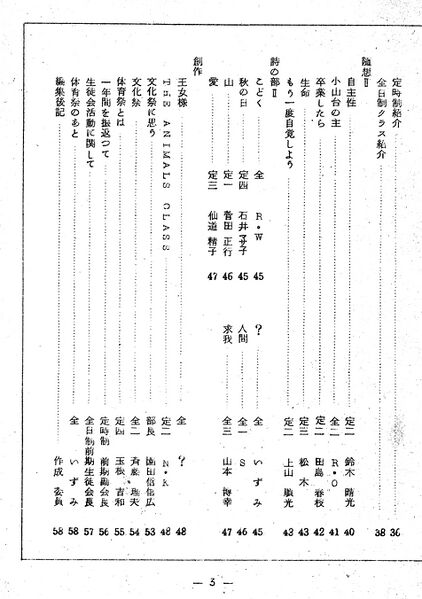 定時制紹介 36
全日制クラス紹介 38
随想Ⅱ
自主性 定二 鈴木 晴光 40
小山台の主 全二 R・O 41
卒業したら 定二 田島 春枝 42
生命 定三 松木 43
もう一度自覚しよう 定二 上山 勝光 43
詩の部Ⅱ
こどく 全 R・W 45
? 全 いずみ 45
秋の日 定四 石井 マサ子 45
人間 全一 S 46
山 定一 菅田 正行 46
求我 全三 山本 博幸 47
愛 定三 仙道 精子 47
創作
王女様 全 ? 48
THE ANIMALS CLASS 定二 N・K 48
文化祭に思う 部長 園田信広 53
文化祭 全二 斉藤 夫 54
体育祭とは 定四 玉松 吉和 55
一年間を振返つて 定時制 前期副会長 56
生徒会活動に関して 全日制前期生徒会長 57
体育祭のあと 全 いずみ 58
編集後記 作成委員 58
— 3 —